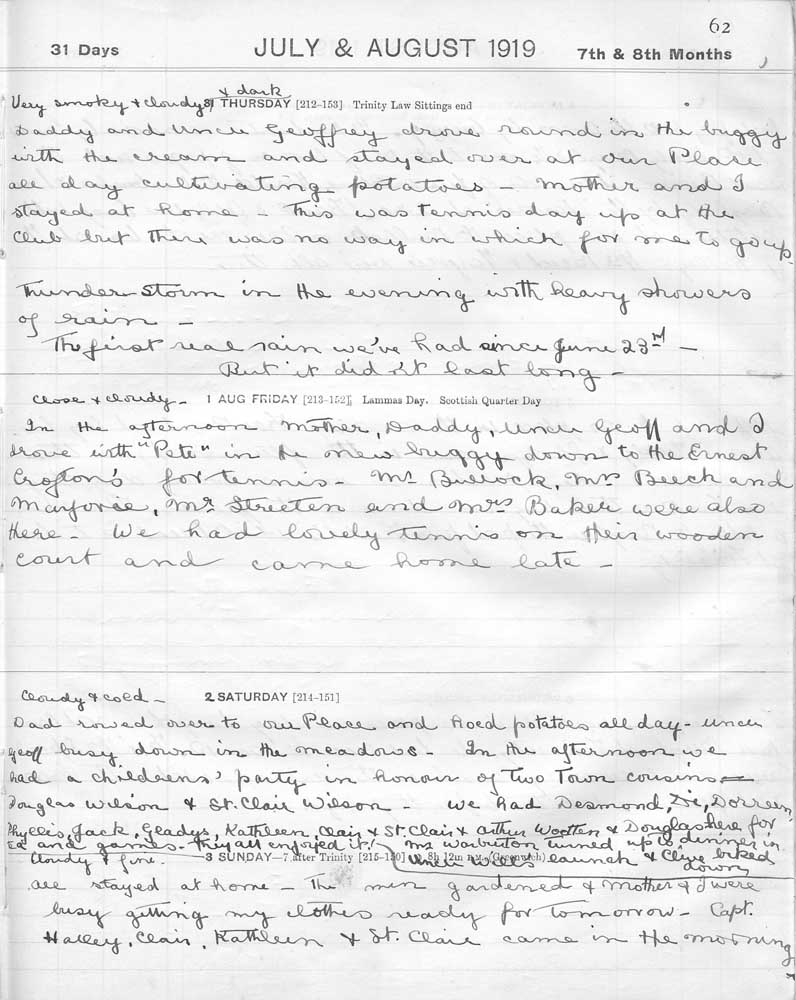 62
31 Days JULY & AUGUST 1919 7th & 8th Months
& dark
Very smoky & cloudy 31 THURSDAY [212-153] Trinity Law Sittings end
Daddy and Uncle Geoffrey drove round in the buggy
with the cream and stayed over at our Place
all day cultivating potatoes - Mother and I
stayed at home - This was tennis day up at the
Club but there was no way in which for me to go up.
Thunder storm in the evening with heavy showers
of rain -
The first real rain we've had since June 23rd -
But it did n't last long -
Close & cloudy - 1 AUG FRIDAY [213-152] Lammas Day. Scottish Quarter Day
In the afternoon Mother, Daddy, Uncle Geoff and I
drove with "Pete" in the new buggy down to the Ernest
Crofton's for tennis - Mr Bullock, Mrs Beech and
Marjorie, Mr Streeten and Mrs Baker were also
there - We had lovely tennis on their wooden
court and came home late -
Cloudy & cold - 2 SATURDAY [214-151]
Dad rowed over to our Place and hoed potatoes all day - Uncle
Geoff busy down in the meadows - In the afternoon we
had a childrens' party in honour of two Town cousins -
Douglas Wilson & St. Clair Wilson - We had Desmond, Di, Dorreen,
Phyllis, Jack, Gladys, Kathleen, Clair & St. Clair & Arthur Wootten & Douglas here for
Tea and games - They all enjoyed it! Mr Warburton turned up to dinner in
Cloudy & fine. 3 SUNDAY-7 after Trinity [215-150] 8h 12m p.m. (Greenwich) Uncle Will's launch & Clive biked
down
All stayed at home - The men gardened & Mother & I were
busy getting my clothes ready for tomorrow - Capt.
Halley, Clair, Kathleen & St. Clair came in the morning